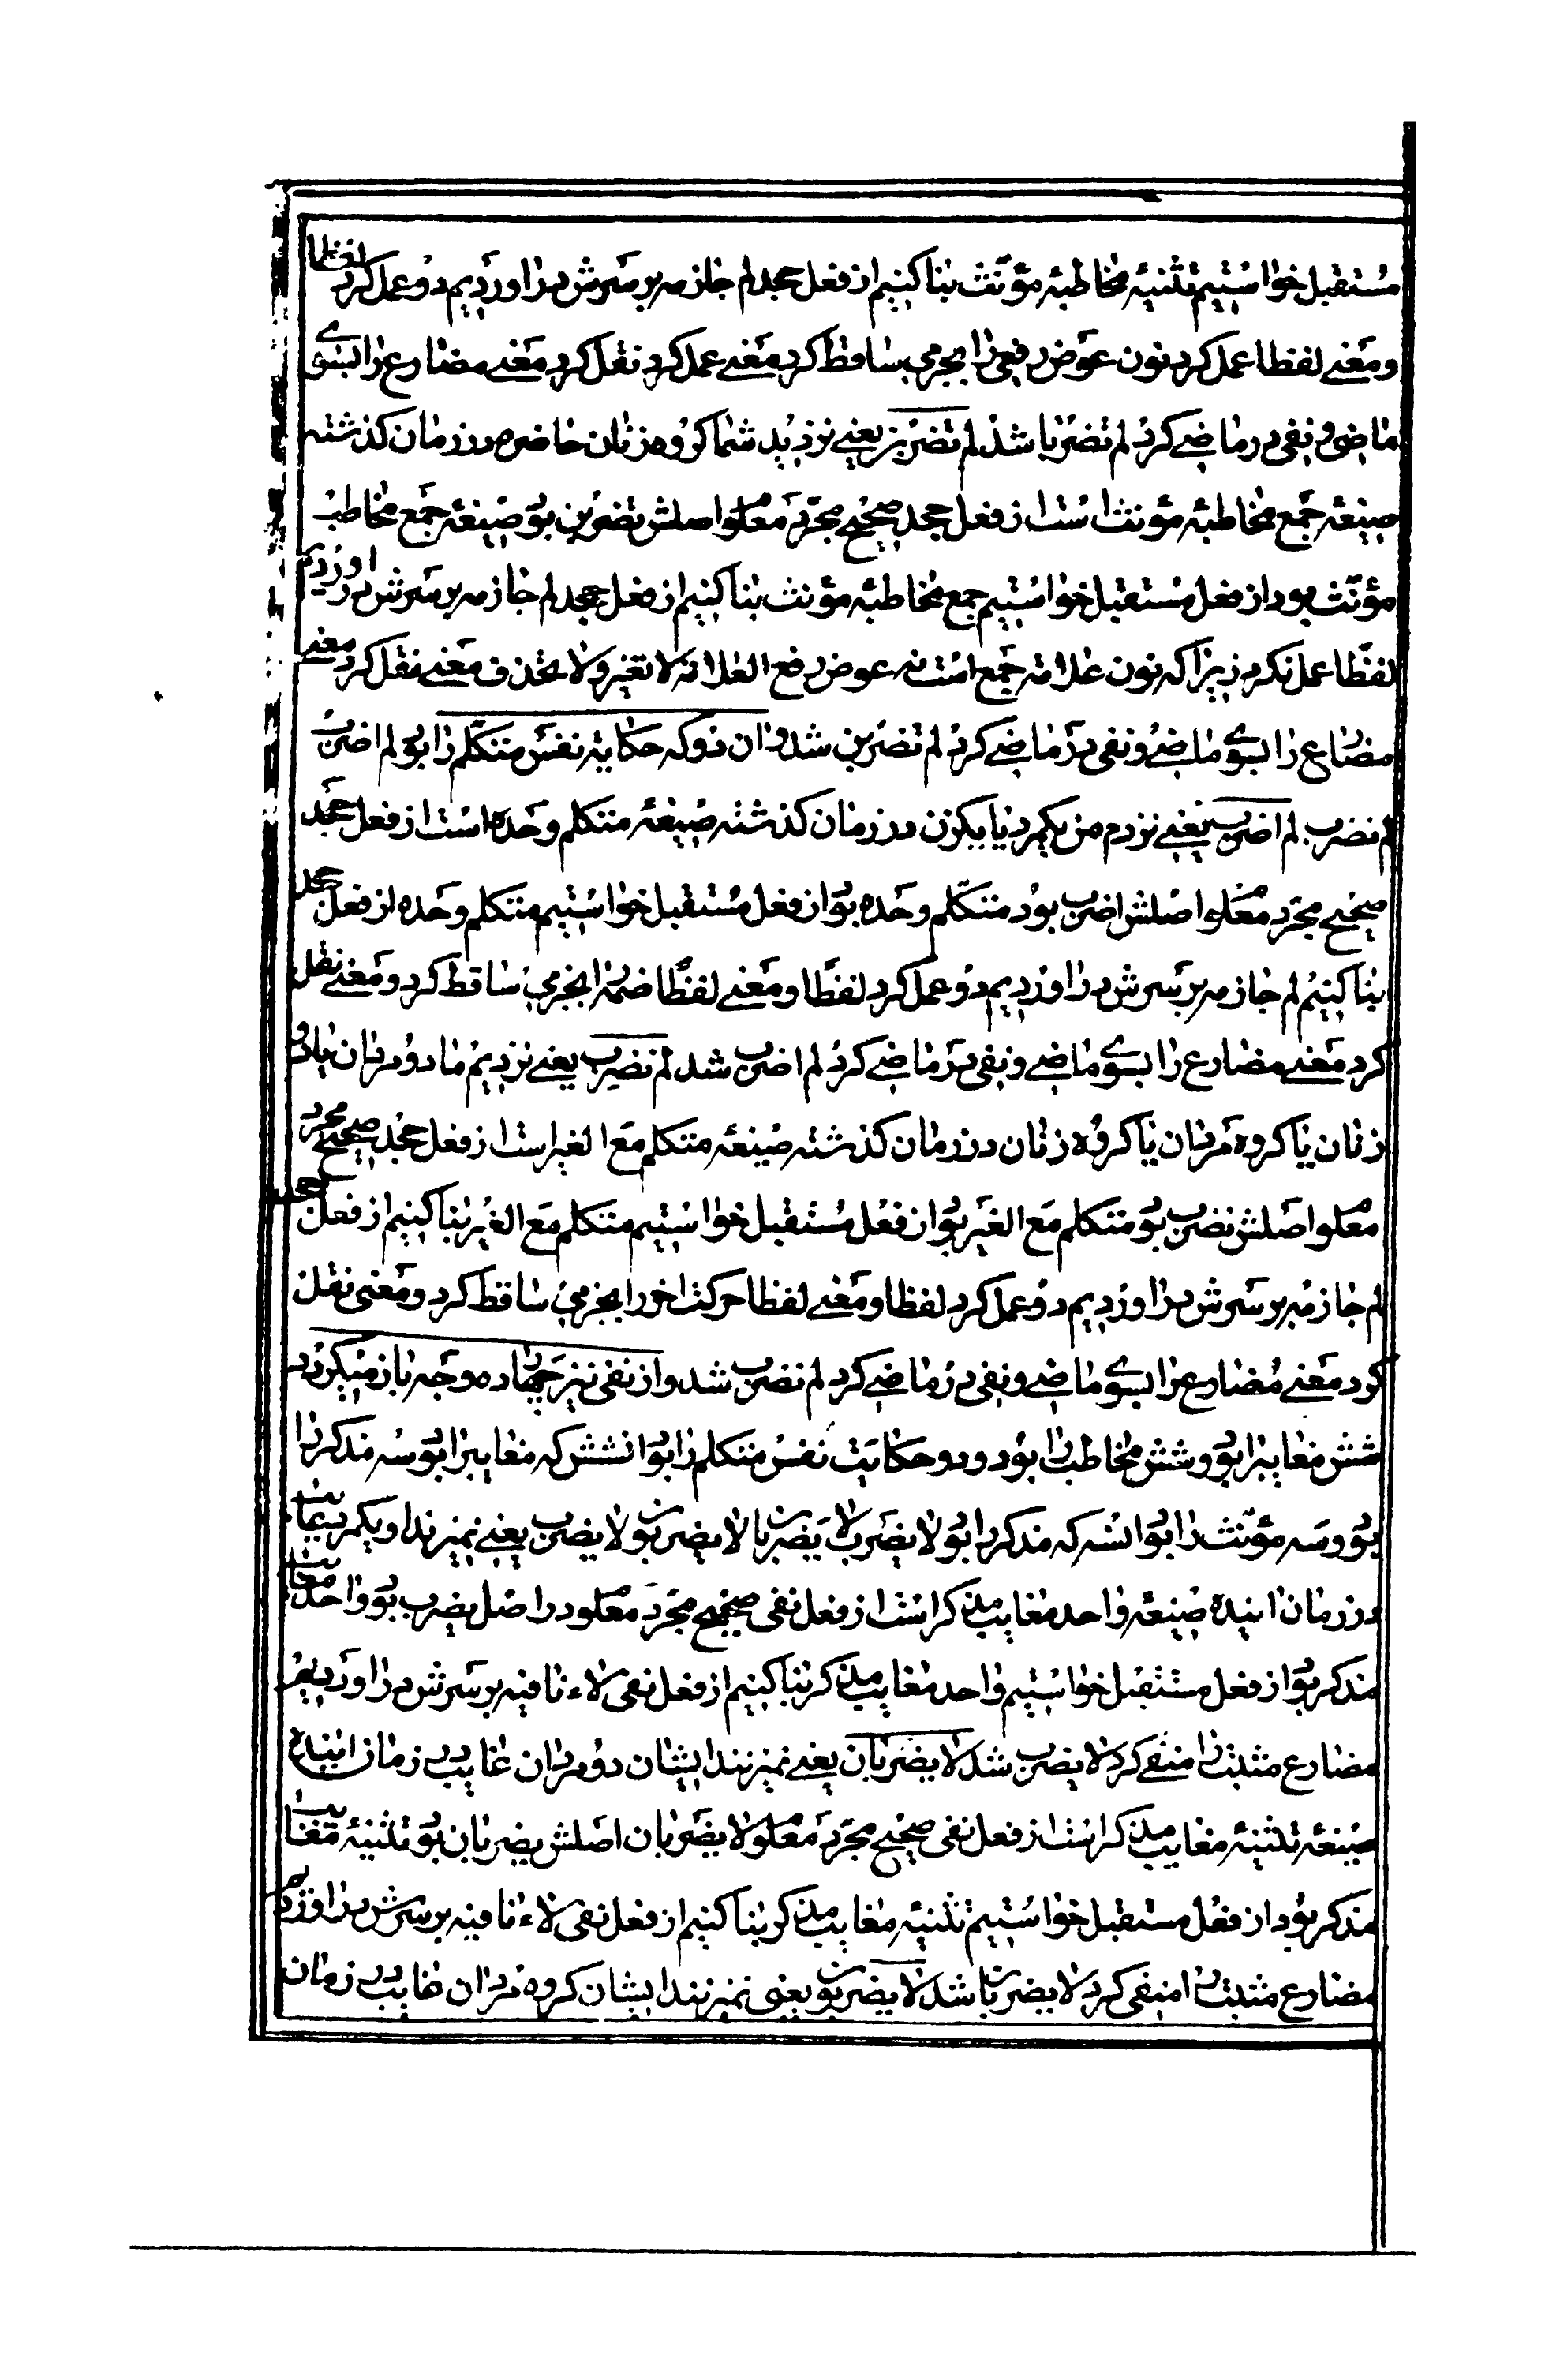 مستقبل خواستیم تثنیهٔ مخاطبهٔ مؤنّث بنا کنیم از فعل جحد لم جازمه بر سرش در اوردیم دو عمل کرد لفظا
و معنے لفظا عمل کرد نون عوض رفعی را بجزمی ساقط کرد معنے عمل کرد نقل کرد معنے مضارع را بسوی
ماضی و نفی در ماضے کرد لم تضربا شد لم تضربن یعنے نزدید شما کروه زنان حاضره در زمان کذشته
صیغهٔ جمع مخاطبهٔ مؤنث است از فعل جحد صحیح مجرّد معلوم اصلش تضربن بود صیغهٔ جمع مخاطبهٔ
مؤنّث بود از فعل مستقبل خواستیم جمع مخاطبهٔ مؤنث بنا کنیم از فعل جحد لم جازمه بر سرش در اوردیم
لفظًا عمل نکرد زیرا که نون علامة جمع است نه عوض رفع العلامة لا تغیر و لا تحذف معنے نقل کرد معنے
مضارع را بسوی ماضے و نفی در ماضے کرد لم تضربن شد و ان دو که حکایة نفس متکلم را بود لم اضرب
لم نضرب لم اضرب یعنے نزدم من یکمرد یا یکزن در زمان کذشته صیغهٔ متکلم وحده است از فعل جحد
صحیح مجرد معلوم اصلش اضرب بود متکلّم وحده بود از فعل مستقبل خواستیم متکلم وحده از فعل جحد
بنا کنیم لم جازمه بر سرش در اوردیم دو عمل کرد لفظًا و معنے لفظًا ضمه را بجزمی ساقط کرد و معنے نقل
کرد معنے مضارع را بسوی ماضے و نفی در ماضے کرد لم اضرب شد لم نضرب یعنے نزدیم ما دو مردان یا دو
زنان یا کروه مردان یا کروه زنان در زمان کذشته صیغهٔ متکلم مع الغیر است از فعل جحد صحیح مجرد
معلوم اصلش نضرب بود متکلم مع الغیر بود از فعل مستقبل خواستیم متکلم مع الغیر بنا کنیم از فعل جحد
لم جازمه بر سرش در اوردیم دو عمل کرد لفظا و معنے لفظا حرکت اخر را بجزمی ساقط کرد و معنی نقل
کرد معنے مضارع را بسوی ماضے و نفی در ماضے کرد لم نضرب شد و از نفی نیز چهارده وجه باز میکردد
شش مغایب را بود و شش مخاطب را بود و دو حکایت نفس متکلم را بود انشش که مغایب را بود سه مذکر را
بود و سه مؤنث را بود انسه که مذکر را بود لا یضرب لا یضربان لا یضربون لا یضرب یعنے نمیزند او یکمرد غایب
در زمان اینده صیغهٔ واحد مغایب مذکر است از فعل نفی صحیح مجرّد معلوم در اصل یضرب بود واحد مغایب
مذکر بود از فعل مستقبل خواستیم واحد مغایب مذکر بنا کنیم از فعل نفی لاء نافیه بر سرش در اوردیم
مضارع مثبت را منفے کرد لا یضرب شد لا یضربان یعنے نمیزنند ایشان دو مردان غایب در زمان اینده
صیغهٔ تثنیهٔ مغایب مذکر است از فعل نفی صحیح مجرّد معلوم لا یضربان اصلش یضربان بود تثنیهٔ مغایب
مذکر بود از فعل مستقبل خواستیم تثنیهٔ مغایب مذکر بنا کنیم از فعل نفی لاء نافیه بر سرش در اوردیم
مضارع مثبت را منفی کرد لا یضربان شد لا یضربون یعنی نمیزنند ایشان کروه مردان غایب در زمان